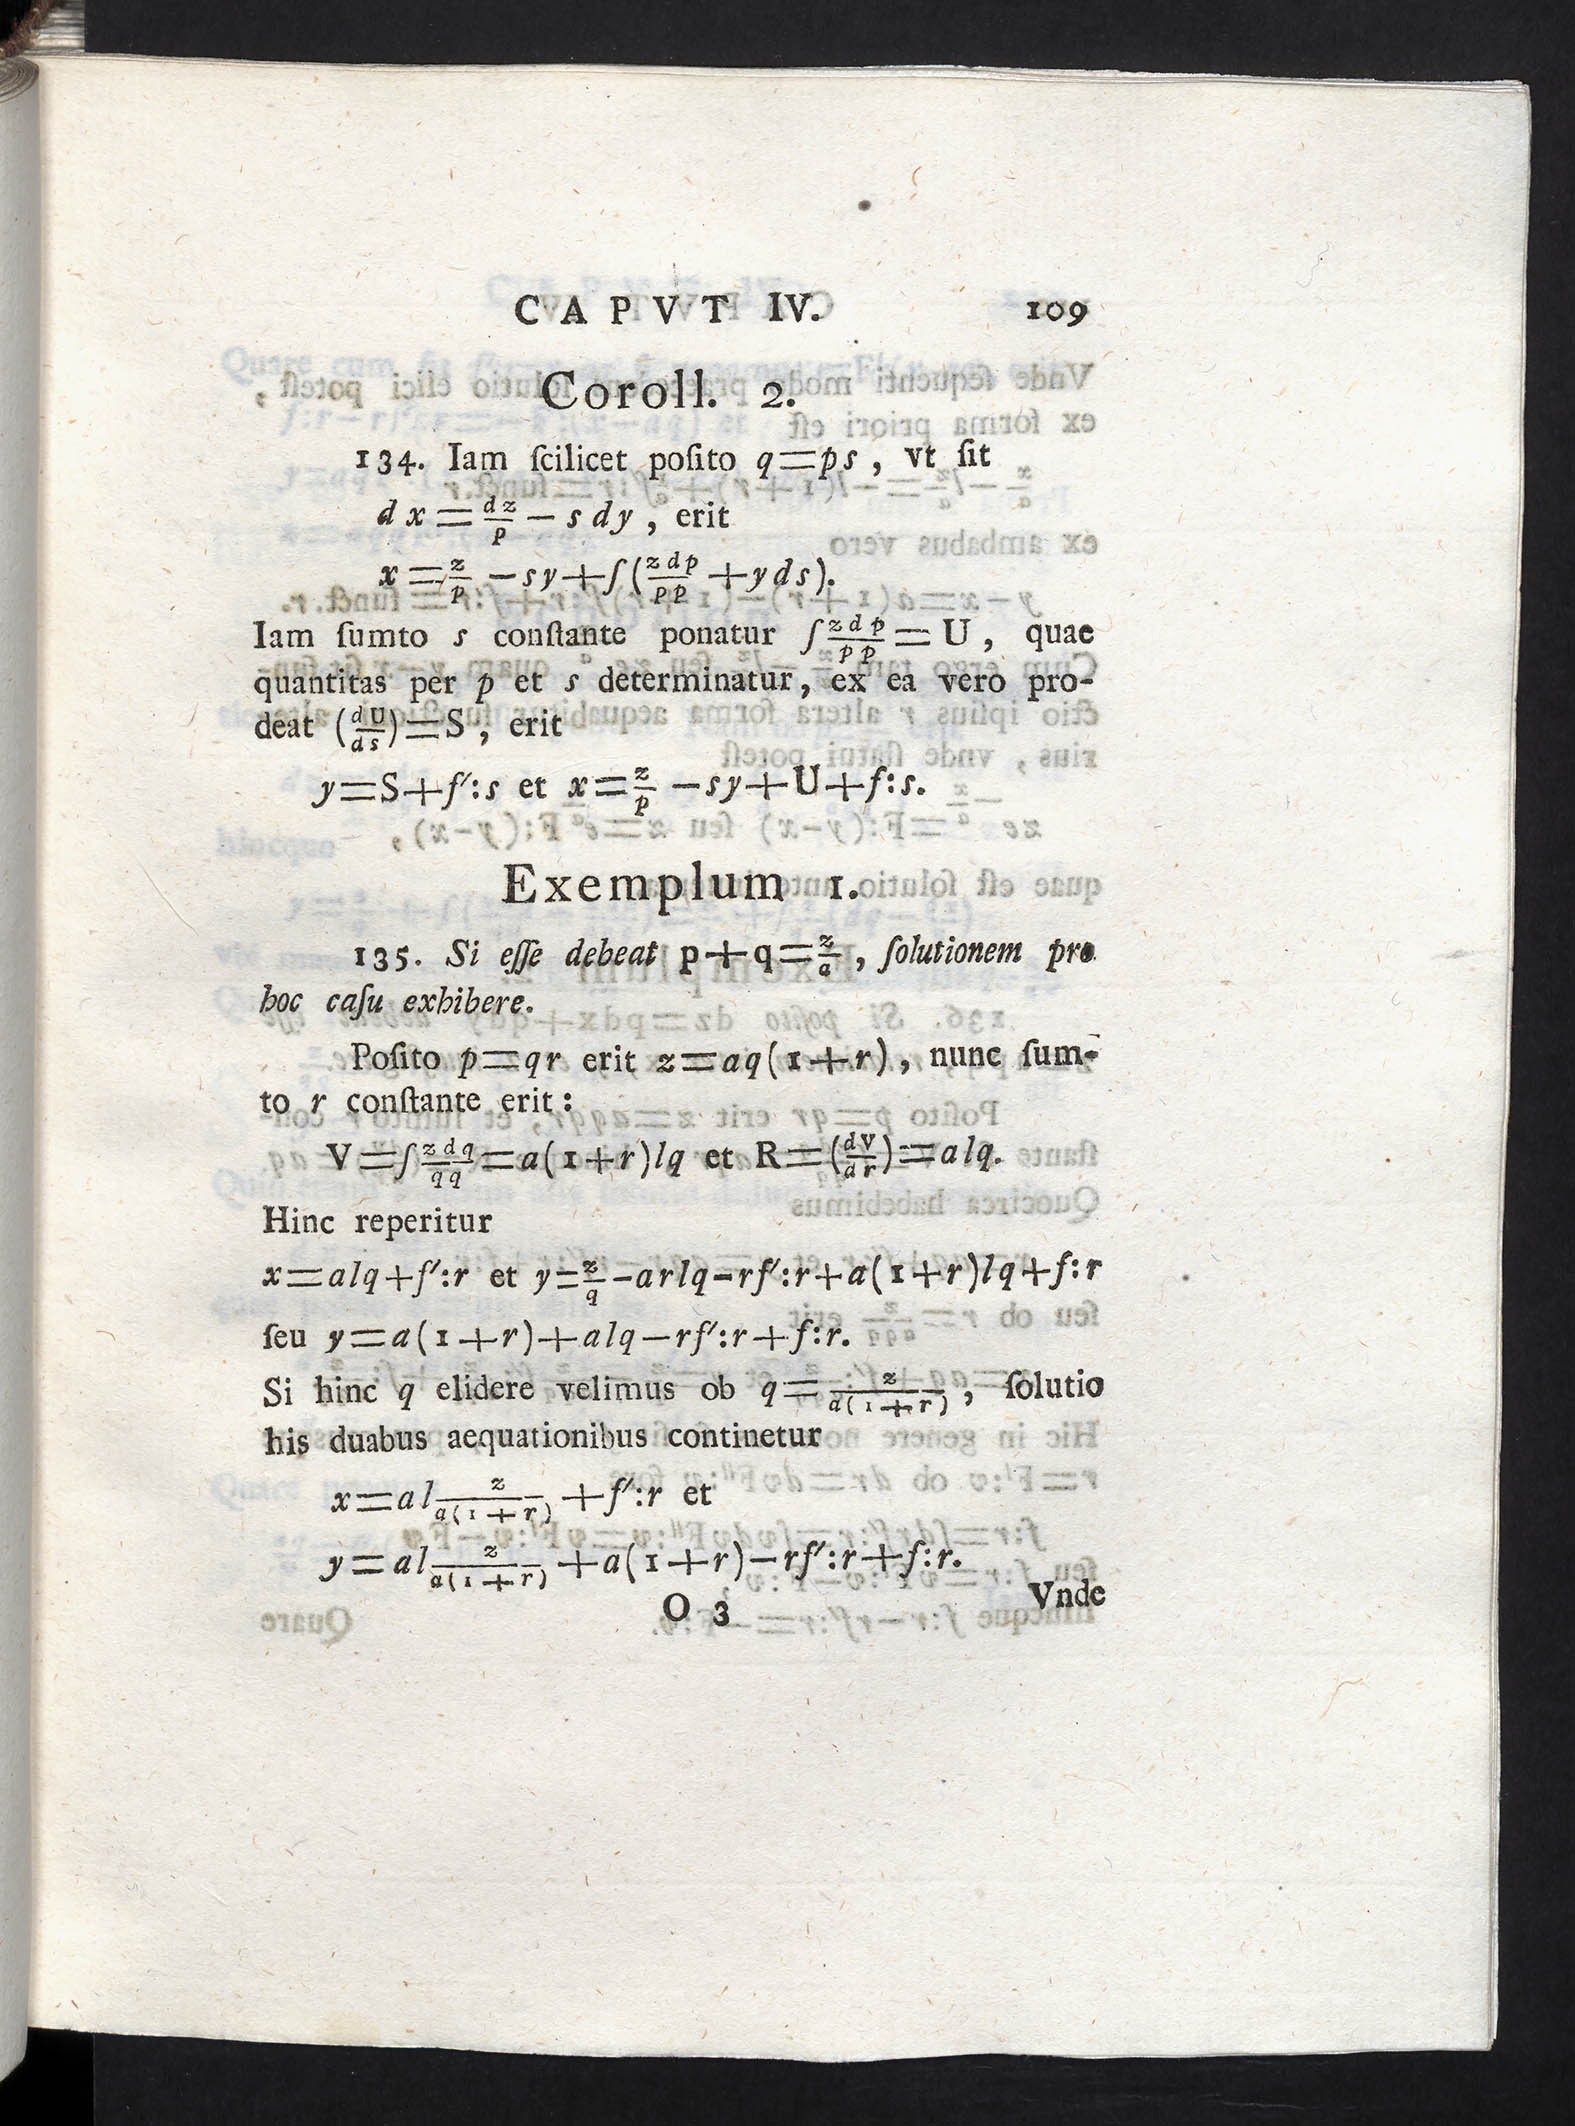 CAPVT IV. 109
Coroll. 2.
134. Iam ſcilicet poſito q=ps, vt ſit
dx = dz/p − s dy, erit
x = z/p − sy + ∫(zdp/pp + yds).
Iam ſumto s conſtante ponatur ∫zdp/pp = U, quae
quantitas per p et s determinatur, ex ea vero pro-
deat (dU/ds) = S, erit
y = S + f′:s et x = z/p − sy + U + f:s.
Exemplum 1.
135. Si eſſe debeat p+q = z/a, ſolutionem pro
hoc caſu exhibere.
Poſito p=qr erit z=aq(1+r), nunc ſum-
to r conſtante erit:
V = ∫zdq/qq = a(1+r)lq et R = (dV/dr) = alq.
Hinc reperitur
x = alq + f′:r et y = z/q − arlq − rf′:r + a(1+r)lq + f:r
ſeu y = a(1+r) + alq − rf′:r + f:r.
Si hinc q elidere velimus ob q = z/a(1+r), ſolutio
his duabus aequationibus continetur
x = al z/a(1+r) + f′:r et
y = al z/a(1+r) + a(1+r) − rf′:r + f:r.
O 3 Vnde